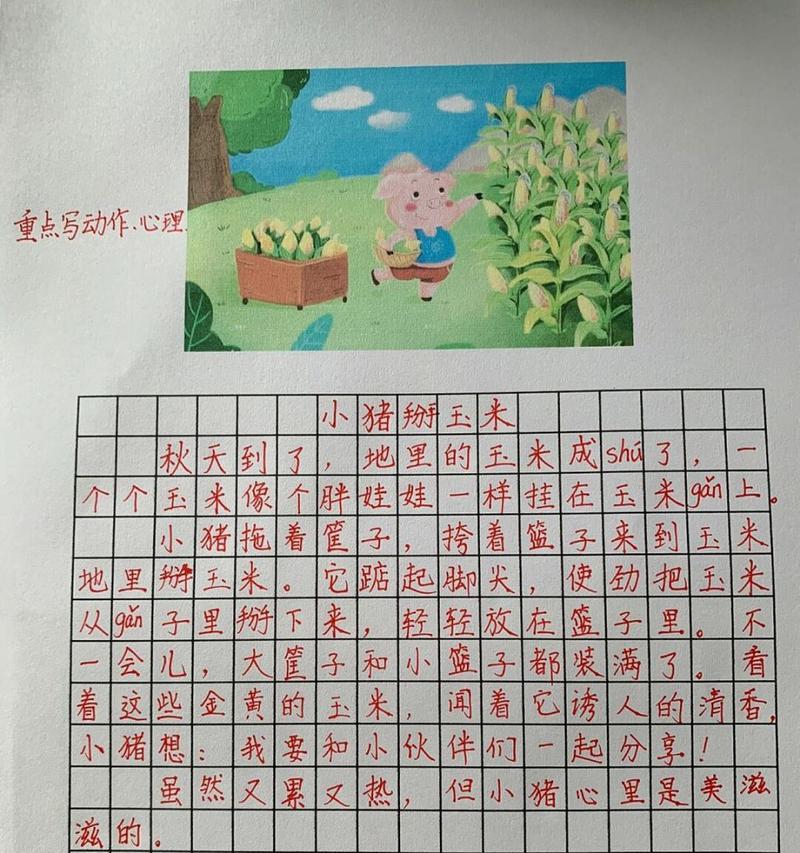 重点写动作、心理.
小猪掰玉米
秋天到了，地里的玉米成shú了，一
个个玉米像个胖娃娃一样挂在玉米gǎn上。
小猪拖着筐子，挎着篮子来到玉米
地里掰玉米。它踮起脚尖，使劲把玉米
从gǎn子里掰下来，轻轻放在篮子里。不
一会儿，大筐子和小篮子都装满了。看
着这些金黄的玉米，闻着它诱人的清香，
小猪想：我要和小伙伴们一起分享！
虽然又累又热，但小猪心里是美滋
滋的。